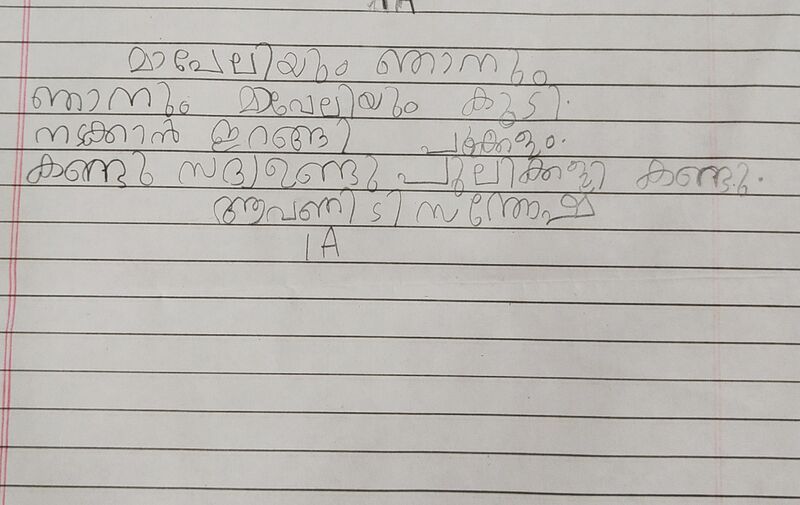 മാവേലിയും ഞാനും
ഞാനും മാവേലിയും കൂടി.
നടക്കാൻ ഇറങ്ങി പൂക്കളം.
കണ്ടു സദ്യഉണ്ടു പുലിക്കളി കണ്ടു.
ആവണി ടി സന്തോഷ്
1A